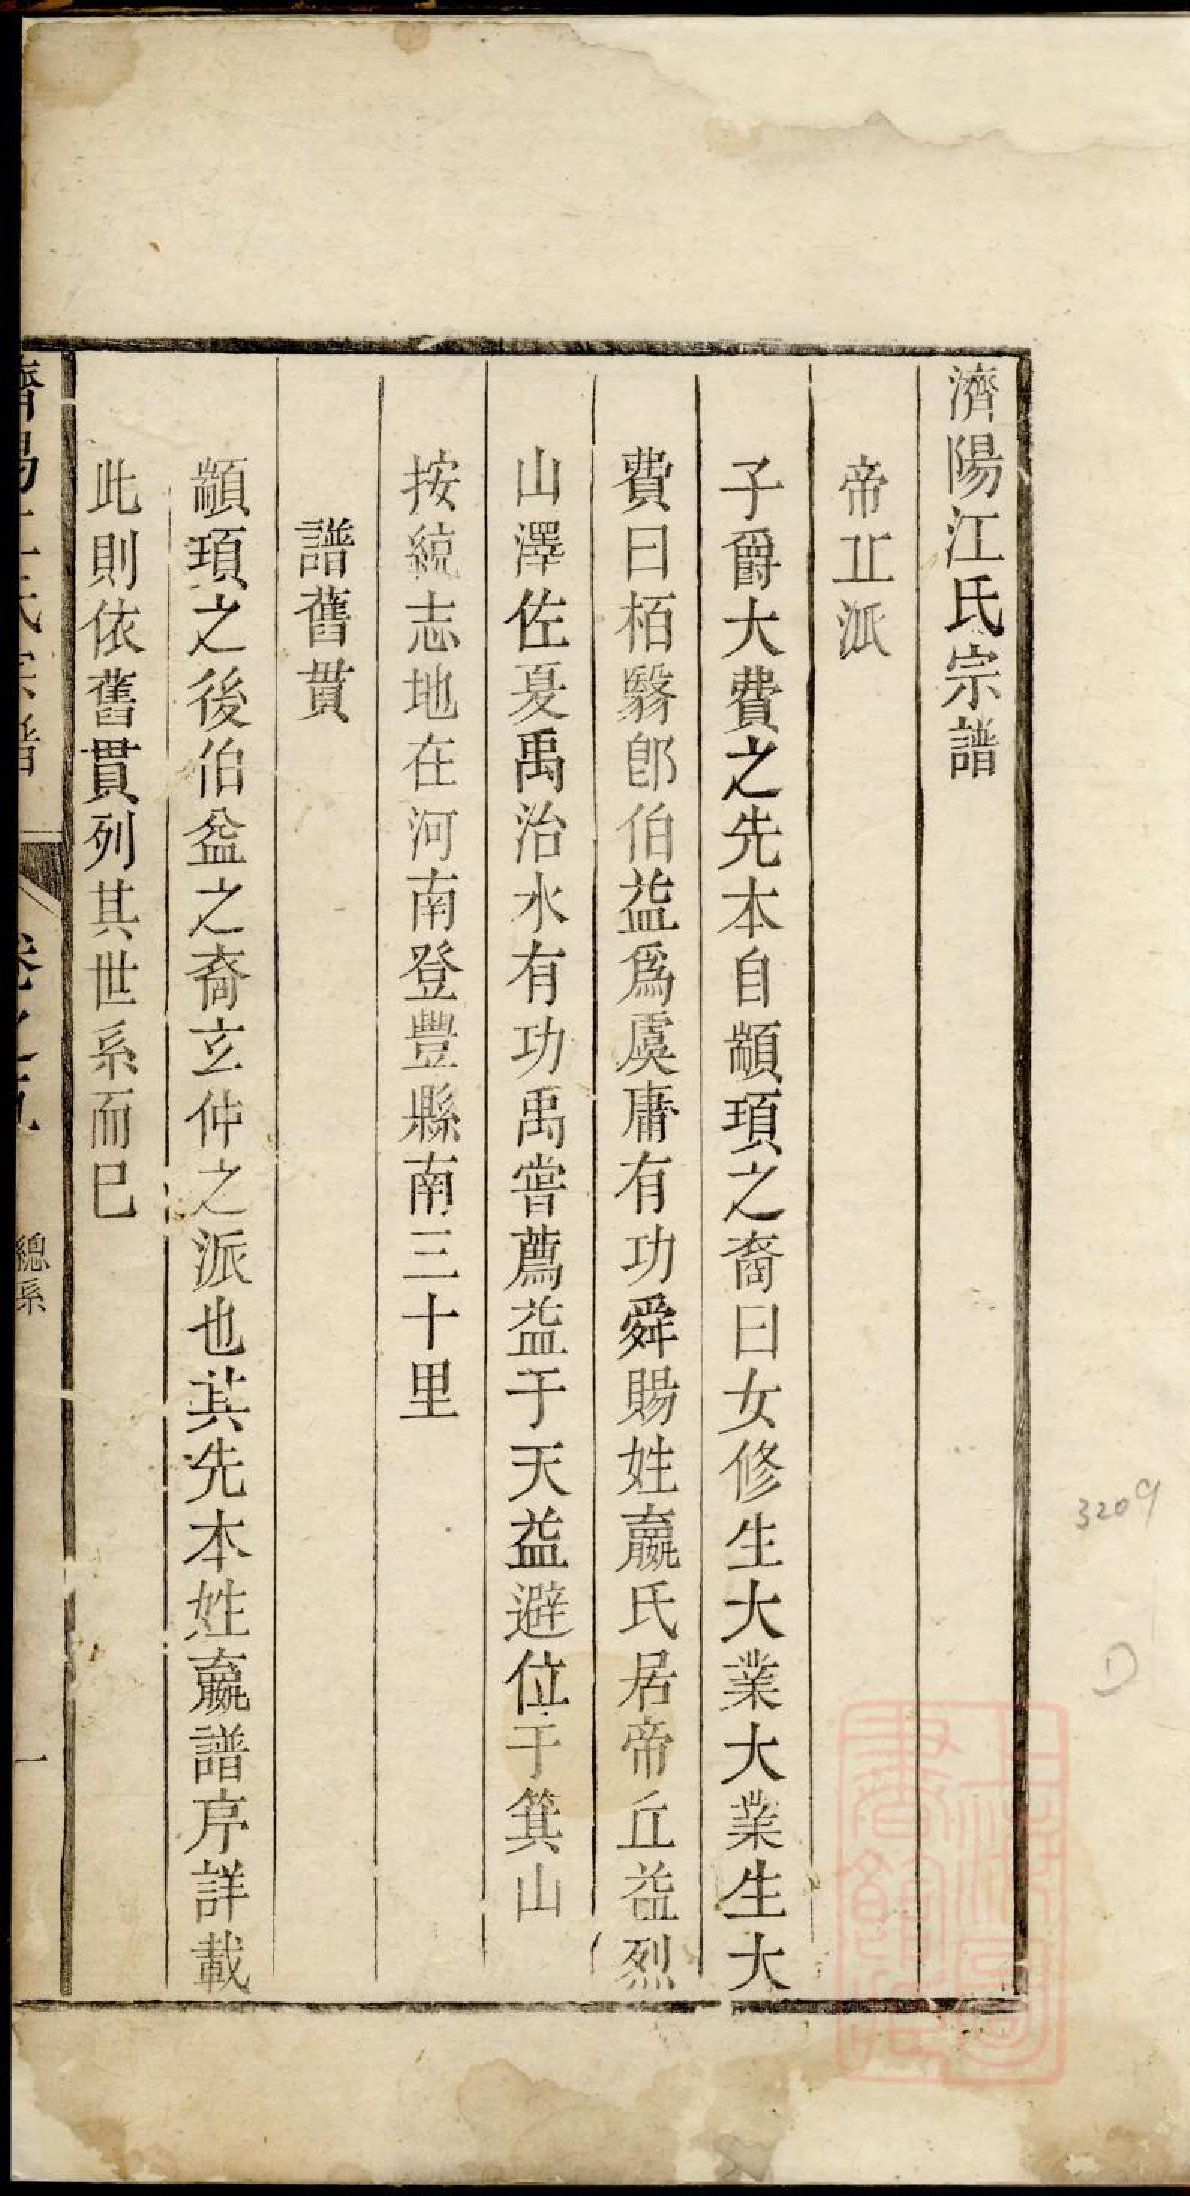 濟陽江氏宗譜
帝丠派
子爵大費之先本自顓頊之裔曰女修生大業大業生大
費曰栢翳卽伯益爲虞庸有功舜賜姓嬴氏居帝丘益烈
山澤佐夏禹治水有功禹嘗薦益于天益避位于箕山
按統志地在河南登豐縣南三十里
譜舊貫
顓頊之後伯益之裔玄仲之派也其先本姓嬴譜序詳載
此則依舊貫列其世系而巳
濟陽江氏宗譜
卷之九
總系
一
3209
D
上海圖書館藏